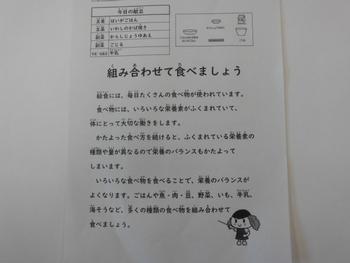 今日の献立
主食
はいがごはん
主菜
いわしのかば焼き
副菜
からしじょうゆあえ
副菜
ごじる
牛乳
組み合わせて食べましょう
給食には、毎日たくさんの食べ物が使われています。
食べ物には、いろいろな栄養素がふくまれていて、
体にとって大切な働きをします。
かたよった食べ方を続けると、ふくまれている栄養素の
種類や量が異なるので栄養のバランスもかたよって
しまいます。
いろいろな食べ物を食べることで、栄養のバランスが
よくなります。ごはんや魚・肉・豆、野菜、いも、牛乳、
海そうなど、多くの種類の食べ物を組み合わせて
食べましょう。